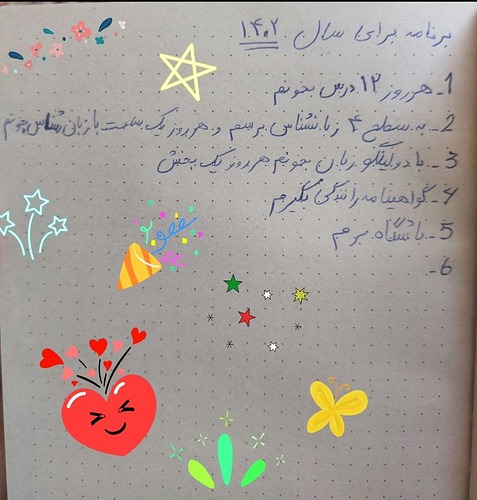 برنامه برای سال ۱۴۰۲
1_ هر روز ۱۲ درس بخونم
2_ به سطح ۴ زبانشناس برسم و هر روز یک ساعت با زبان شناس بخونم
3_ با دولینگو زبان بخونم هر روز یک بخش
4_ گواهینامه رانندگی بگیرم
5_ باشگاه برم
6_